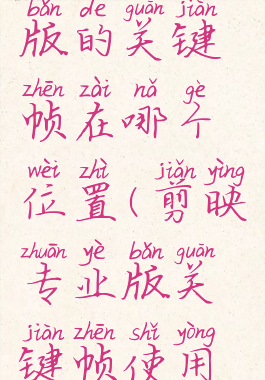 bǎn de guān jiàn
版的关键
zhēn zài nǎ gè
帧在哪个
wèi zhì jiǎn yìng
位置(剪映
zhuān yè bǎn guān
专业版关
jiàn zhēn shǐ yòng
键帧使用